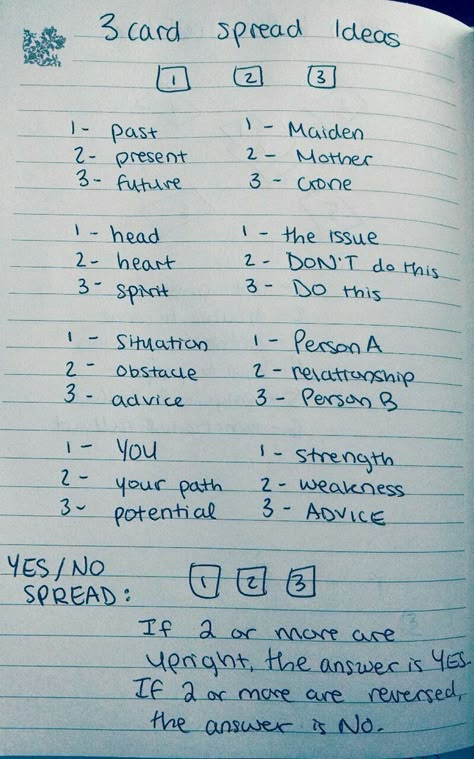 3 card spread Ideas
1 2 3
1- past
2- present
3- future
1- Maiden
2- Mother
3- crone
1- head
2- heart
3- spirit
1- the issue
2- DON'T do this
3- DO this
1- Situation
2- obstacle
3- advice
1- Person A
2- relationship
3- Person B
1- YOU
2- your path
3- potential
1- strength
2- weakness
3- ADVICE
YES/NO
SPREAD:
1 2 3
If 2 or more are
upright, the answer is YES.
If 2 or more are reversed,
the answer is No.